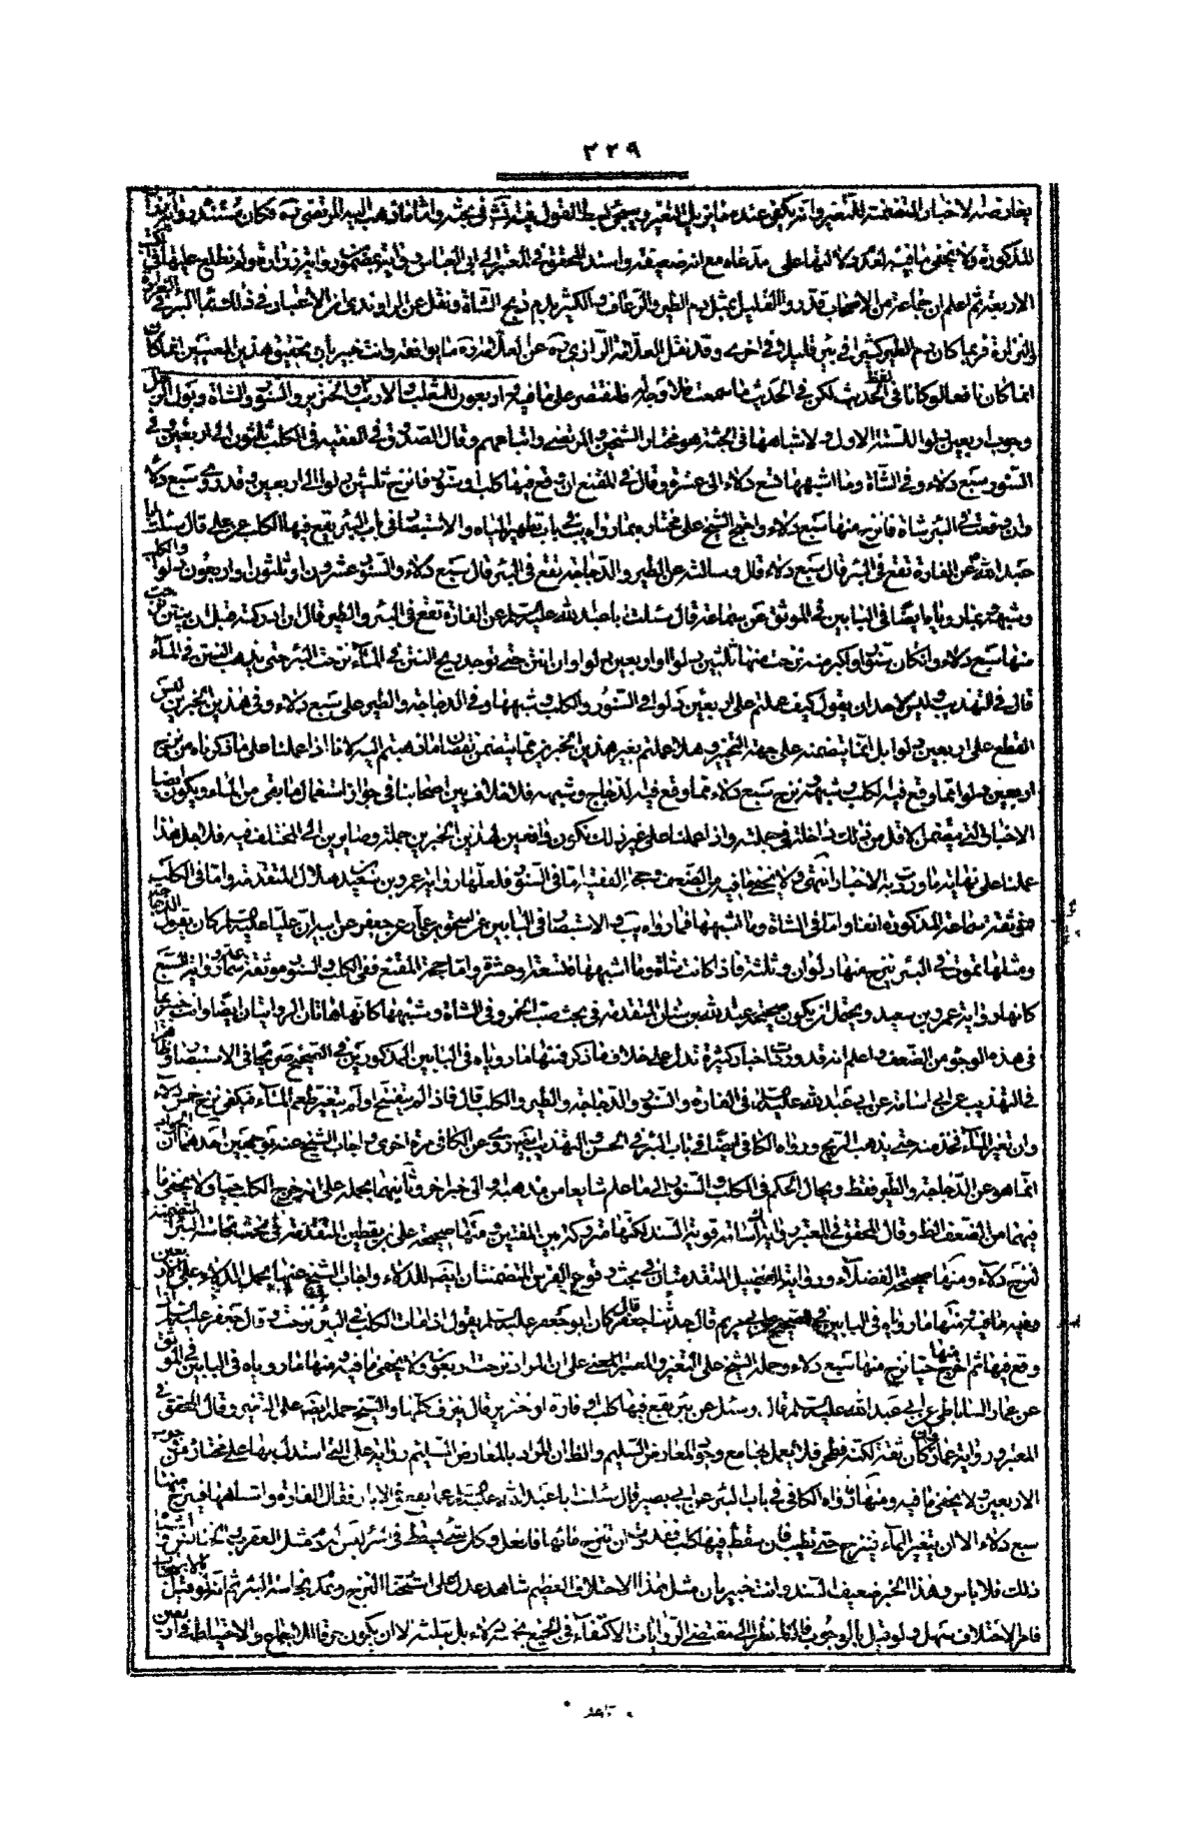 ٢٢٩
يعارضه الاخبار المتضمنة للتغير وانه يكفي عنده ما يزيل التغير وسيجئ القول فيه في بحثه واما ما ذهب اليه المرتضى ره فكان مستنده رواية زرارة
المذكورة ولا يخفى ما فيه لعدم دلالتها على مدعاه مع انه ضعيف واسند المحقق في المعتبر الى ولم نطلع عليها في الكتب
الاربعة ثم اعلم ان جماعة من الاصحاب قدروا القليل بمثل دم الطير والرعاف والكثير بدم ذبح الشاة ونقل عن الراوندي ان الاعتبار في ذلك بماء البئر في الغزارة
والنزارة فربما كان دم الطير كثيرا في بئر قليلا في اخرى وقد نقل العلامة الرازي ره عن العلامة ره ما يوافقه وانت خبير بان تحقيق هذين المعنيين
انما كان نافعا لو كانا في لفظ الحديث لكن في الحديث ما سمعت فلا وجه فلنقتصر على ما فيه واربعون للثعلب والارنب والخنزير والسنور والشاة وبول الرجل
وجوب اربعين دلوا للستة الاول ولاشباهها في الجثة هو مختار الشيخين والمرتضى واتباعهم وقال الصدوق في الفقيه في الكلب ثلثون الى اربعين وفي
السنور سبع دلاء وفي الشاة وما اشبهها تسع دلاء الى عشرة وقال في المقنع ان وقع فيها كلب او سنور فانزح ثلثين دلوا الى اربعين وقد روى سبع دلاء
وان وقعت في البئر شاة فانزح منها سبع دلاء واحتج الشيخ على مختاره بما رواه في يب باب تطهير المياه والاستبصار في باب البئر يقع فيها الكلب عن علي قال سئلت ابا
عبد الله عن الفارة تقع في البئر قال سبع دلاء قال وسالته عن الطير والدجاجة تقع في البئر قال سبع دلاء والسنور عشرون او ثلثون او اربعون دلوا والكلب
وشبهه وبما روياه ايضا في البابين في الموثق عن سماعة قال سئلت ابا عبد الله عليه السلام عن الفارة تقع في البئر والطير قال ان ادركته قبل ان ينتن نزحت
منها سبع دلاء وان كان سنورا او اكبر منه نزحت منها ثلثين دلوا او اربعين دلوا وان انتن حتى توجد ريح النتن في الماء نزحت البئر حتى يذهب النتن من الماء
قال في التهذيب وليس لاحد ان يقول كيف عملتم على اربعين دلوا في السنور والكلب وشبهها وفي الدجاجة والطير على سبع دلاء وفي هذين الخبرين ليس
القطع على اربعين دلوا بل انما يتضمنه على جهة التخيير وهلا عملتم بغير هذين الخبرين مما يتضمن نقصان ما ذهبتم اليه لانا اذا عملنا على ما ذكرناه من نزح
اربعين دلوا مما وقع فيه الكلب وشبهه ونزح سبع دلاء مما وقع فيه الدجاج وشبهه فلا خلاف بين اصحابنا في جواز استعمال ما بقي من الماء ويكون ايضا
الاخبار التي تتضمن الاقل من ذلك داخلة في جملته واذا عملنا على غير ذلك نكون دافعين لهذين الخبرين جملة وصايرين الى المختلف فيه فلاجل هذا
عملنا على نهاية ما وردت به الاخبار انتهى ولا يخفى ما فيه من الضعف وحجة الفقيه اما في السنور فلعلها رواية عمرو بن سعيد بن هلال المتقدمة واما في الكلب
فموثقة سماعة المذكورة انفا واما في الشاة وما اشبهها فما رواه يب والاستبصار في البابين عن اسحق بن عمار عن جعفر عن ابيه ان عليا عليه السلم كان يقول الدجاجة
ومثلها تموت في البئر ينزح منها دلوان وثلثة فاذا كانت شاة وما اشبهها فتسعة او عشرة واما حجة المقنع ففي الكلب والسنور موثقة سماعة ورواية السبع
كانها رواية عمرو بن سعيد ويحتمل ان يكون صحيحة عبد الله بن سنان المتقدمة في بحث صب الخمر وفي الشاة وشبهها كانها هاتان الروايتان ايضا وانت خبير بما
في هذه الوجوه من الضعف واعلم انه قد وردت اخبار كثيرة تدل على خلاف ما ذكر فمنها ما روياه في البابين المذكورين في الصحيح صريحا في الاستبصار وظاهرا
في التهذيب عن ابي اسامة عن ابي عبد الله عليه السلم في الفارة والسنور والدجاجة والطير والكلب قال فاذا لم يتفسخ او لم يتغير طعم الماء فيكفي نزح خمس دلاء
وان تغير الماء فخذ منه حتى يذهب الريح ورواه الكافي ايضا في باب البئر في الحسن والتهذيب عن الكافي مرة اخرى واجاب الشيخ عنه بوجهين احدهما ان
انما هو عن الدجاجة والطير فقط ويحال الحكم في الكلب والسنور الى ما علم شايعا من مذهبه والى خبر اخر وثانيهما بحمله على انه خرج الكلب حيا ولا يخفى ما
فيهما من الضعف وقال المحقق في المعتبر رواية ابي اسامة قوية السند لكنها متروكة بين المفتين ومنها صحيحة علي بن يقطين المتقدمة في بحث نجاسة البئر المتضمنة
لنزح دلاء ومنها صحيحة الفضلاء ورواية الفضيل المتقدمتان في بحث وقوع الفرس المتضمنتان ايضا للدلاء واجاب الشيخ عنها بحمل الدلاء على الاربعين
وفيه ما فيه ومنها ما رواه في البابين في الصحيح عن ابي مريم قال حدثنا جعفر قال كان ابو جعفر عليه السلم يقول اذا مات الكلب في البئر نزحت وقال جعفر عليه السلم اذا
وقع فيها ثم اخرج منها حيا نزح منها سبع دلاء وحمله الشيخ على التغير ولا يخفى ما فيه ومنها ما روياه في البابين في الموثق
عن عمار الساباطي عن ابي عبد الله عليه السلم قال وسئل عن بئر يقع فيها كلب او فارة او خنزير قال ينزف كلها والشيخ حمله ايضا على التغير وقال المحقق في
المعتبر ورواية عمار وان كان ثقة لكنه فطحي فلا يعمل بها مع وجود المعارض السليم والظاهر ان المراد بالمعارض السليم رواية علي التي استدل بها على مختاره من وجوب
الاربعين ولا يخفى ما فيه ومنها ما رواه الكافي في باب البئر عن ابي بصير قال سئلت ابا عبد الله عليه السلم عما يقع في الابار فقال الفارة واشباهها فينزح منها
سبع دلاء الا ان يتغير الماء فينزح حتى تطيب فان سقط فيها كلب فقدرت ان تنزح ماءها فافعل وكل شئ سقط في البئر ليس له دم مثل العقرب والخنافس واشباه
ذلك فلا باس وهذا الخبر ضعيف السند وانت خبير بان مثل هذا الاختلاف العظيم شاهد عدل على استحباب النزح وعدم نجاسة البئر ثم انه لو قيل بالاستحباب
فامر الاختلاف سهل ولو قيل بالوجوب فالظاهر نظرا الى مقتضى الروايات الاكتفاء في الجميع بخمس دلاء بل بثلثة الا ان يكون خرقا للاجماع والاحتياط في اربعين